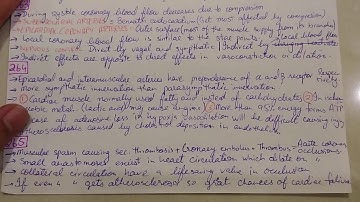 During systole coronary blood flow decreases due to compression
SUBENDOCARDIAL ARTERIES = beneath endocardium (but most affected by compression)
EPICARDIAL CORONARY ARTERIES = Outer surface (most of the muscle supply from its branches)
Local coronary blood flow is similar to the skm muscle local blood flow
NERVOUS CONTROL = Direct by vagal and sympathetic | Indirect by
Indirect effects are opposite to direct effects in vasoconstriction or dilation.
264
Epicardial and intramuscular arteries have preponderance of α and β receptor respec tively
more sympathetic innervation than parasympathetic innervation
① Cardiac muscle normally used fatty acid instead of carbohydrates ② In
metabo (lactic acid) more than 95% energy forms ATP
of adenosine loss in hypoxia vasodilation will be difficult causing
Atherosclerosis caused by cholesterol deposition in endothelium
265
Muscular spasm causing sec. thrombosis + Coronary embolus + Thrombus = Acute coronary occlusion
Small anastomoses exist in heart circulation which dilate on "
Collateral circulation have a life saving value in occlusion
If even " get atherosclerosed so great chances of cardiac failure